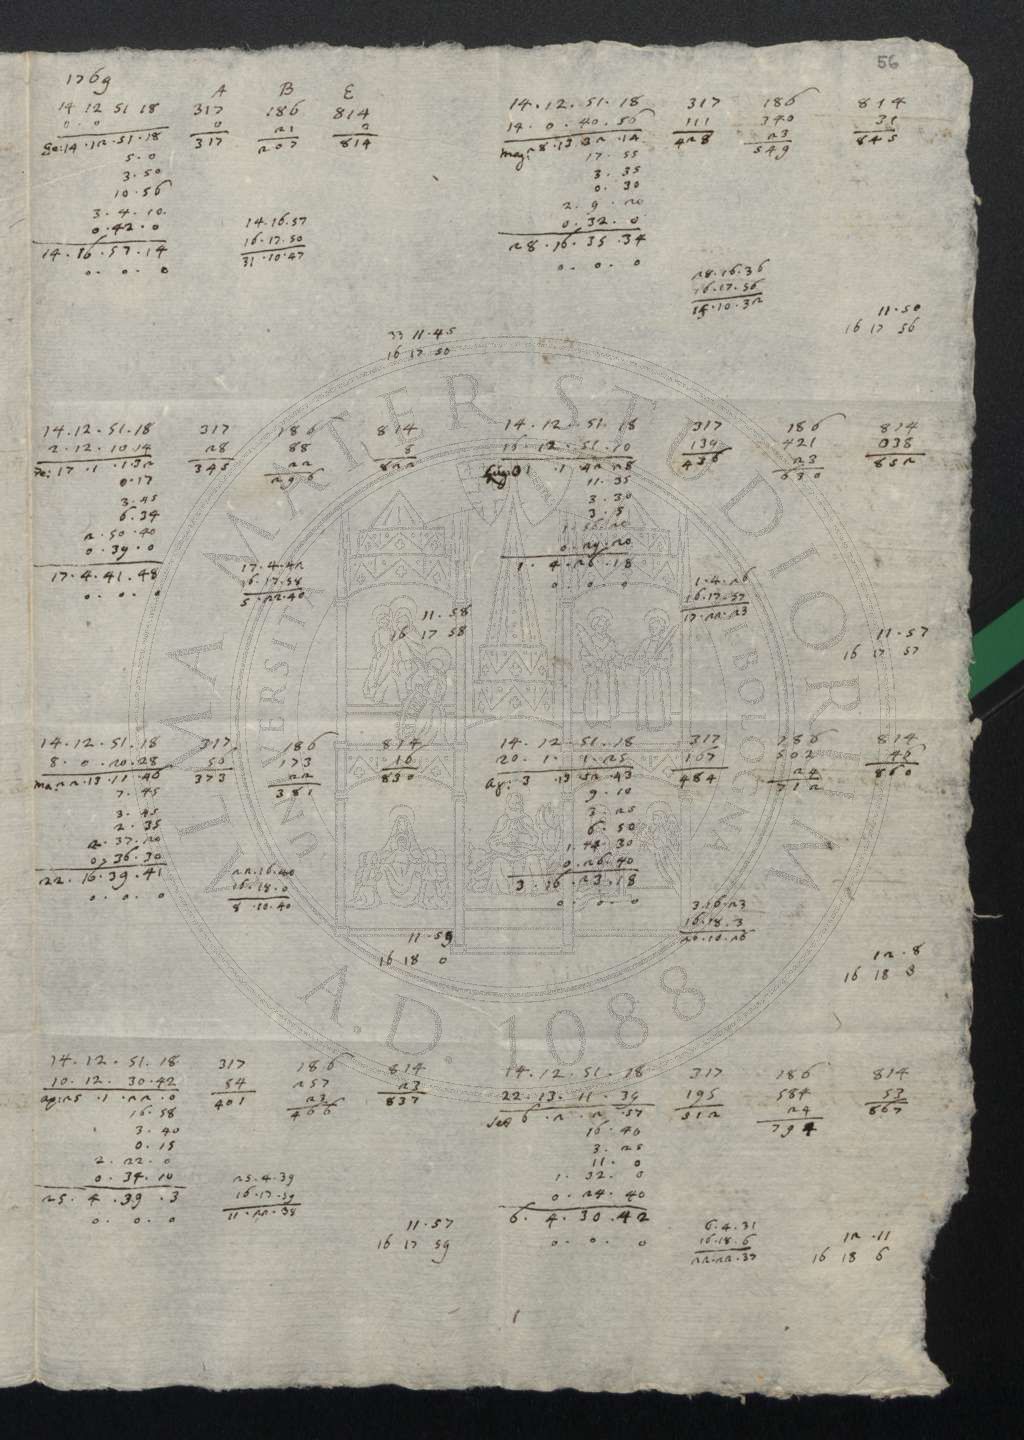 56
1769
A B E
14 12 51 18 317 186 814
0 . 0 0 21 0
Ge: 14 . 12 . 51 . 18 317 207 814
5 . 0
3 . 50
10 . 56
3 . 4 . 10
0 . 42 . 0
14 . 16 . 57 . 14
0 . 0 . 0
14 . 16 . 57
16 . 17 . 50
31 . 10 . 47
33 11 . 45
16 17 50
14 . 12 . 51 . 18 317 186 814
14 . 0 . 40 . 56 111 340 31
mag: 28 . 13 . 32 . 14 428 23 845
549
17 . 55
3 . 35
0 . 30
2 . 9 . 20
0 . 32 . 0
28 . 16 . 35 . 34
0 . 0 . 0
28 . 16 . 36
16 . 17 . 56
15 . 10 . 32
11 . 50
16 17 56
14 . 12 . 51 . 18 317 186 814
2 . 12 . 10 . 14 28 88 8
fe: 17 . 1 . 1 . 32 345 22 822
296
0 . 17
3 . 45
6 . 34
2 . 50 . 40
0 . 39 . 0
17 . 4 . 41 . 48
0 . 0 . 0
17 . 4 . 42
16 . 17 . 58
5 . 22 . 40
11 . 58
16 17 58
14 . 12 . 51 . 18 317 186 814
16 . 12 . 51 . 10 139 421 038
1 . 42 28 456 23 852
630
11 . 35
3 . 30
3 . 5
1 . 56 . 20
0 . 29 . 20
1 . 4 . 26 . 18
0 . 0 . 0
1 . 4 . 26
16 . 17 . 57
17 . 22 . 23
11 . 57
16 17 57
14 . 12 . 51 . 18 317 186 814
8 . 0 . 20 . 28 56 173 16
mar: 22 . 13 . 11 . 46 373 22 830
381
7 . 45
3 . 45
2 . 35
2 . 37 . 20
0 . 36 . 30
22 . 16 . 39 . 41
0 . 0 . 0
22 . 16 . 40
16 . 18 . 0
8 . 10 . 40
11 . 59
16 18 0
14 . 12 . 51 . 18 317 186 814
20 . 1 . 1 . 25 167 502 46
Ag: 3 . 13 . 52 . 43 484 24 860
712
9 . 10
3 . 25
6 . 50
1 . 44 . 30
0 . 26 . 40
3 . 16 . 23 . 18
0 . 0 . 0
3 . 16 . 23
16 . 18 . 3
20 . 10 . 26
12 . 8
16 18 3
14 . 12 . 51 . 18 317 186 814
10 . 12 . 30 . 42 84 257 23
ap: 25 . 1 . 22 . 0 401 23 837
466
16 . 58
3 . 40
0 . 15
2 . 22 . 0
0 . 34 . 10
25 . 4 . 39 . 3
0 . 0 . 0
25 . 4 . 39
16 . 17 . 59
11 . 22 . 38
11 . 57
16 17 59
14 . 12 . 51 . 18 317 186 814
22 . 13 . 11 . 39 195 584 53
Set 6 . 2 . 2 . 57 512 24 867
794
16 . 40
3 . 25
11 . 0
1 . 32 . 0
0 . 24 . 40
6 . 4 . 30 . 42
0 . 0 . 0
6 . 4 . 31
16 . 18 . 6
22 . 22 . 37
12 . 11
16 18 6
ALMA MATER STUDIORUM
UNIVERSITÀ DI BOLOGNA
A.D. 1088